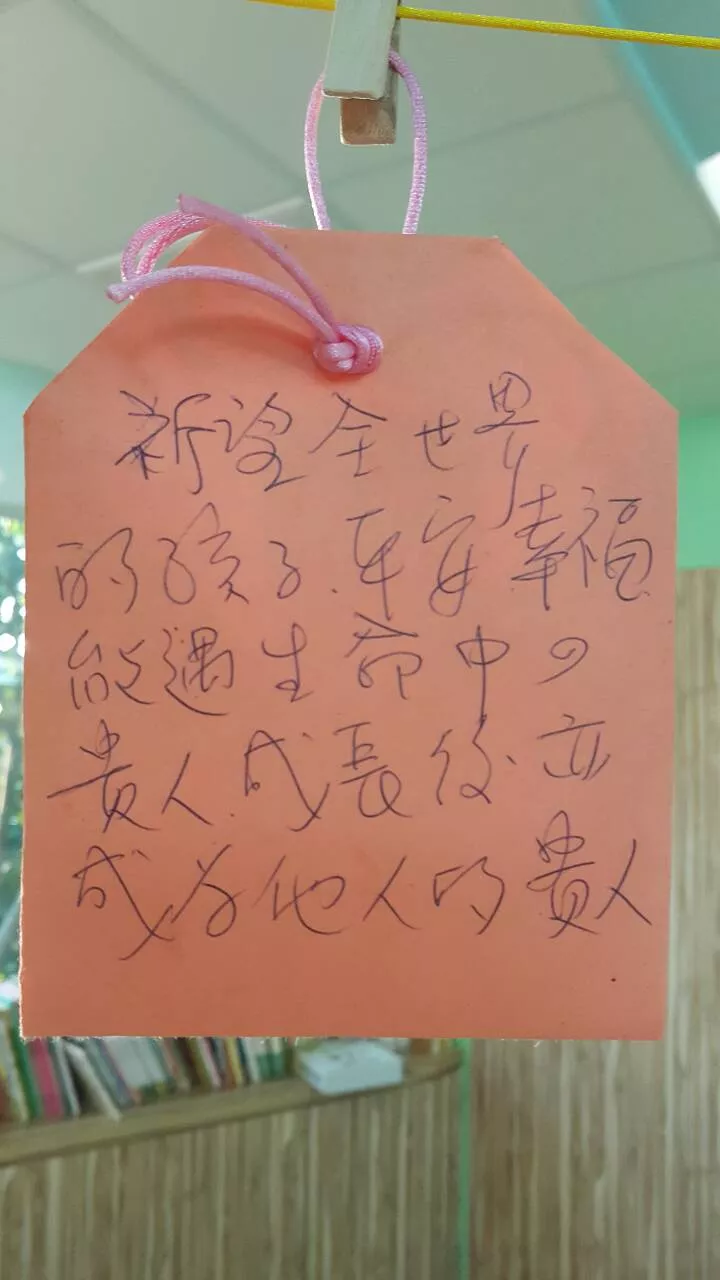 祈望全世界
的孩子.平安幸福
能遇生命中の
貴人.成長後.亦
成為他人的貴人